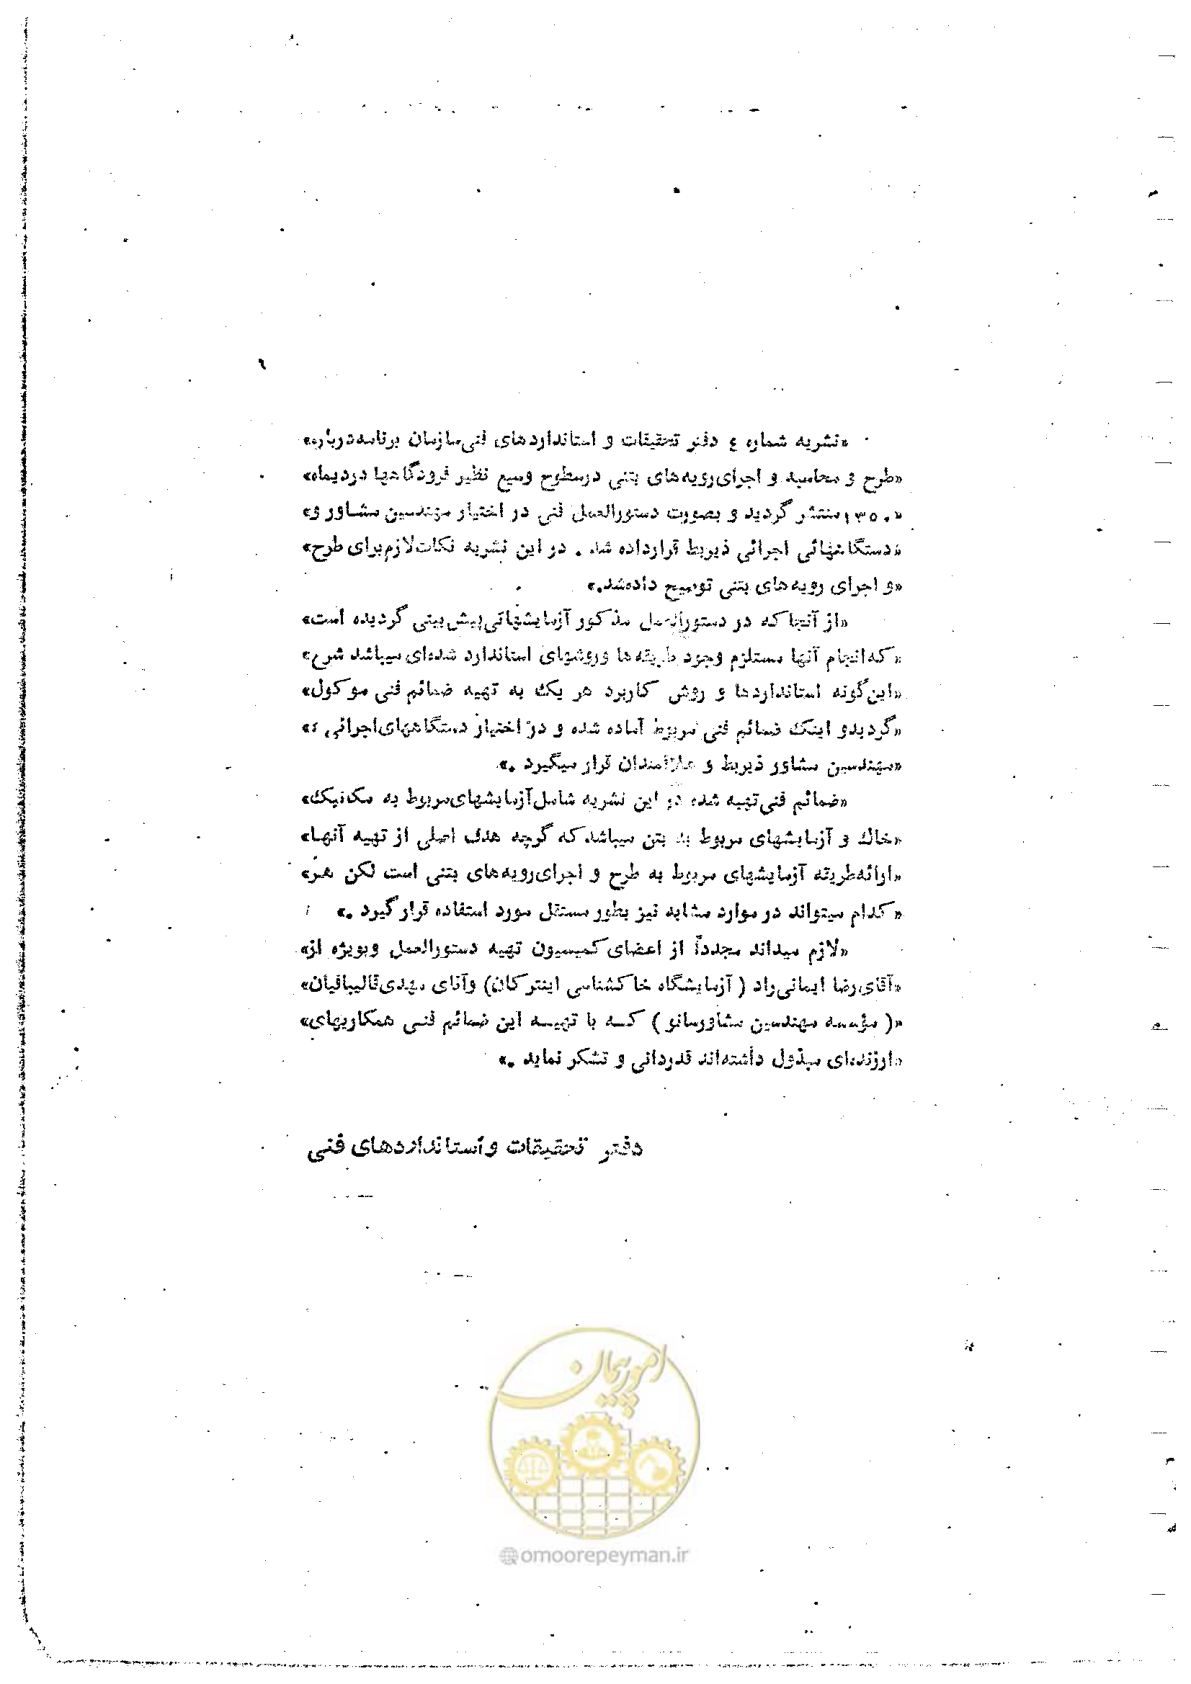 «نشریه شماره ٤ دفتر تحقیقات و استانداردهای فنی سازمان برنامه درباره»
«طرح و محاسبه و اجرای رویه‌های بتنی درسطوح وسیع نظیر فرودگاهها دردیماه»
«۱۳۵۰ منتشر گردید و بصورت دستورالعمل فنی در اختیار مهندسین مشاور و»
«دستگاههائی اجرائی ذیربط قرارداده شد . در این نشریه نکات لازم برای طرح»
«و اجرای رویه‌های بتنی توضیح داده‌شد.»
«از آنجا که در دستورالعمل مذکور آزمایشهائی پیش بینی گردیده است»
«که انجام آنها مستلزم وجود طریقه‌ها و روشهای استاندارد شده‌ای میباشد شرح»
«این‌گونه استانداردها و روش کاربرد هر یک به تهیه ضمائم فنی موکول»
«گردید و اینک ضمائم فنی مربوط آماده شده و در اختیار دستگاههای اجرائی ،»
«مهندسین مشاور ذیربط و علاقمندان قرار میگیرد .»
«ضمائم فنی تهیه شده در این نشریه شامل آزمایشهای مربوط به مکانیک»
«خاک و آزمایشهای مربوط به بتن میباشد که گرچه هدف اصلی از تهیه آنها»
«ارائه طریقه آزمایشهای مربوط به طرح و اجرای رویه‌های بتنی است لکن هر»
«کدام میتواند در موارد مشابه نیز بطور مستقل مورد استفاده قرار گیرد .»
«لازم میداند مجدداً از اعضای کمیسیون تهیه دستورالعمل وبویژه از»
«آقای رضا ایمانی‌راد ( آزمایشگاه خاکشناسی اینترکان) وآقای مهدی قالیبافیان»
«( مؤسسه مهندسین مشاورسانو ) کــه با تهیــه این ضمائم فنــی همکاریهای»
«ارزنده‌ای مبذول داشته‌اند قدردانی و تشکر نماید .»
دفتر تحقیقات واستانداردهای فنی
امور پیمان
@omoorepeyman.ir